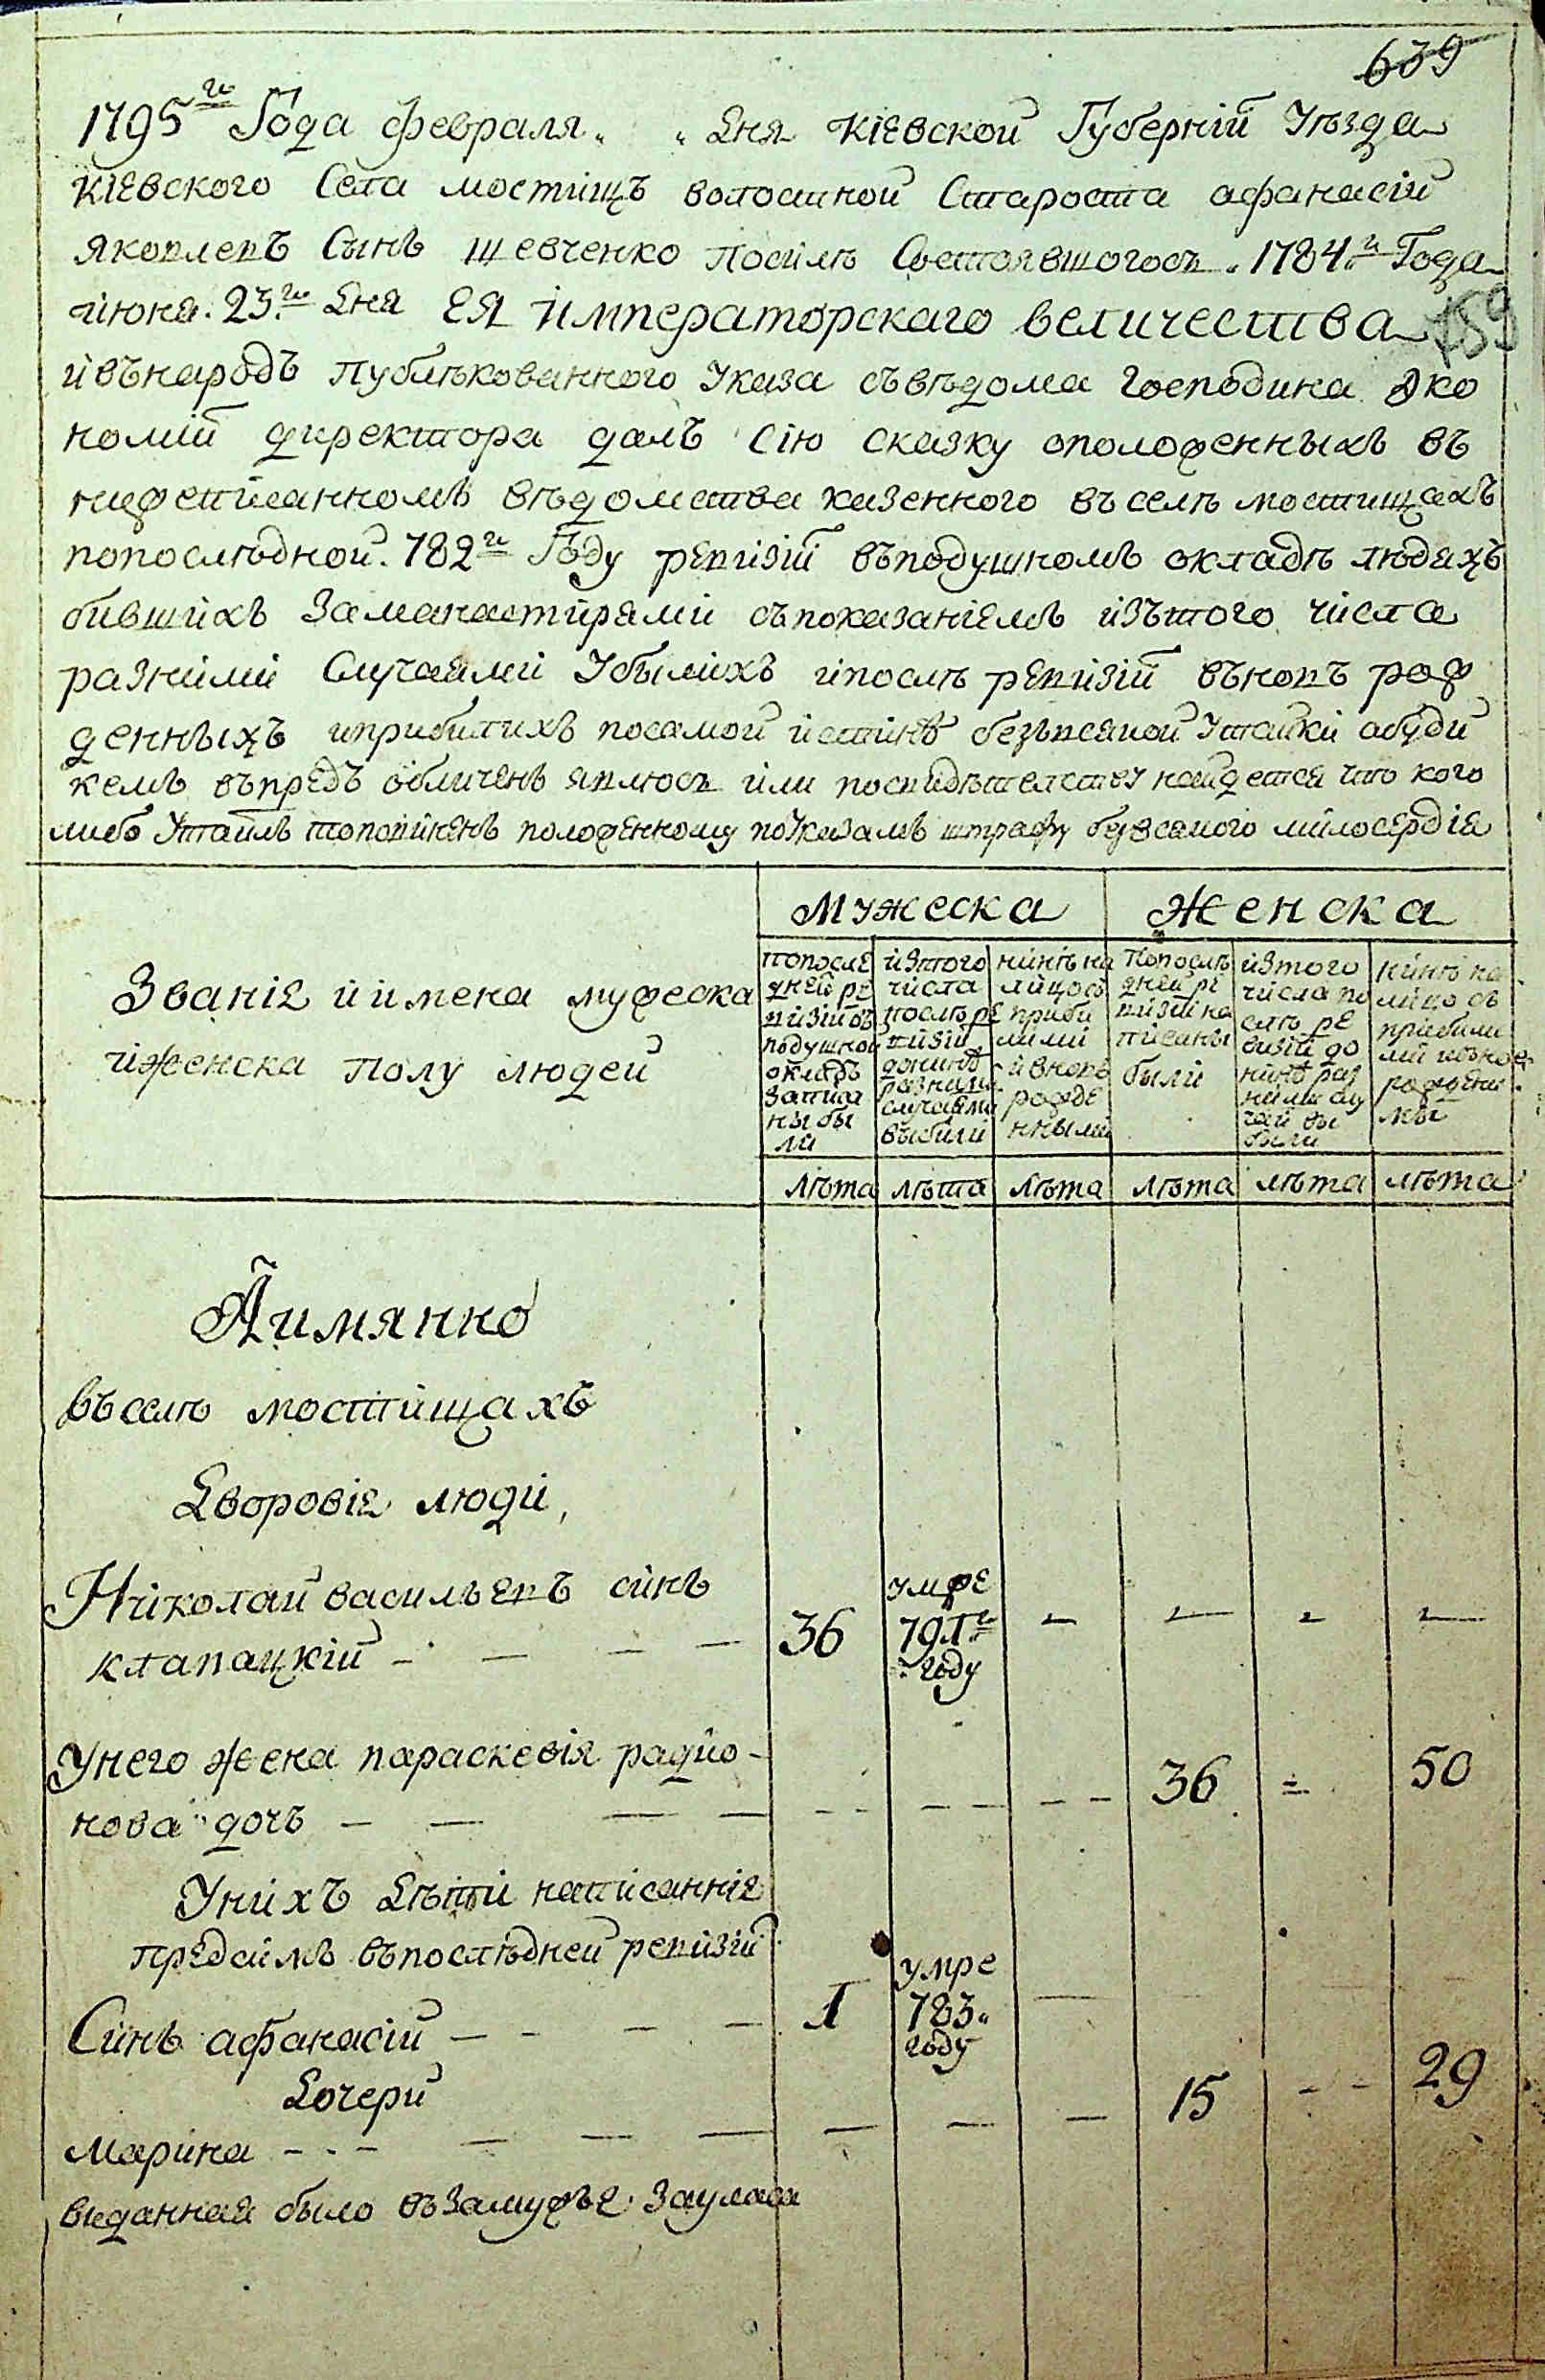 639
1795го Года февраля „ „ дня Кіевской Губерніи Уѣзда
Кіевского Села мостищъ волостной Староста афанасій
яковлевъ Сынъ шевченко Посилѣ Состоявшогось 1784го Года
июня 23го дня ЕЯ императорскаго величества
159
ивънародъ публѣкованного Указа съвѣдома Господина Эко
номіи директора далъ Сію сказку оположенныхъ въ
нижеписанномъ вѣдомства казенного въселѣ мостищахъ
попослѣдной 782го Году ревизіи въподушномъ окладѣ людехъ
бившихъ Заманастирями съпоказаніемъ изътого числа
разними Случаями Убылихъ ипослѣ ревизіи въновъ рож
денныхъ иприбилихъ посамой истинѣ безъвсякой Утайки абуди
кемъ въпредъ обличенъ явлюсь или посвидѣтелству найдется что кого
либо Утаилъ топовиненъ положенному поУказамъ штрафу безвсякого милосердія
Званіе иимена мужеска
иженска полу людей
Мужеска
Женска
попосле
дней ре
визіи въ
подушной
окладъ
запис
ны бы
ли
изтого
числа
послѣ ре
визіи
донинѣ
разними
случаями
выбили
нинѣ на
лицо съ
приби
лими
ивновь
рожде
нными
Попослѣ
дней ре
визіи на
писаны
были
изтого
числа по
слѣ ре
визіи до
нинѣ раз
ними слу
чаи вы
были
нинѣ на
лицо съ
прибили
ми ивнов
рожденн
мы
лѣта лѣта лѣта лѣта лѣта лѣта
Аимянно
въселѣ мостищахъ
Дворовіе люди,
Николай васильевъ синъ
клапацкій — — — — 36 умре 791го году — — — —
Унего жена параскевія радио-
нова дочь — — — — — — — 36 — 50
Унихъ дѣти написанніе
предсимъ въпослѣдней ревизіи
Синъ афанасій — — — — 1 умре 783 году —
Дочери
марина — — — — — — — — 15 — — 29
виданная было въЗамужъе